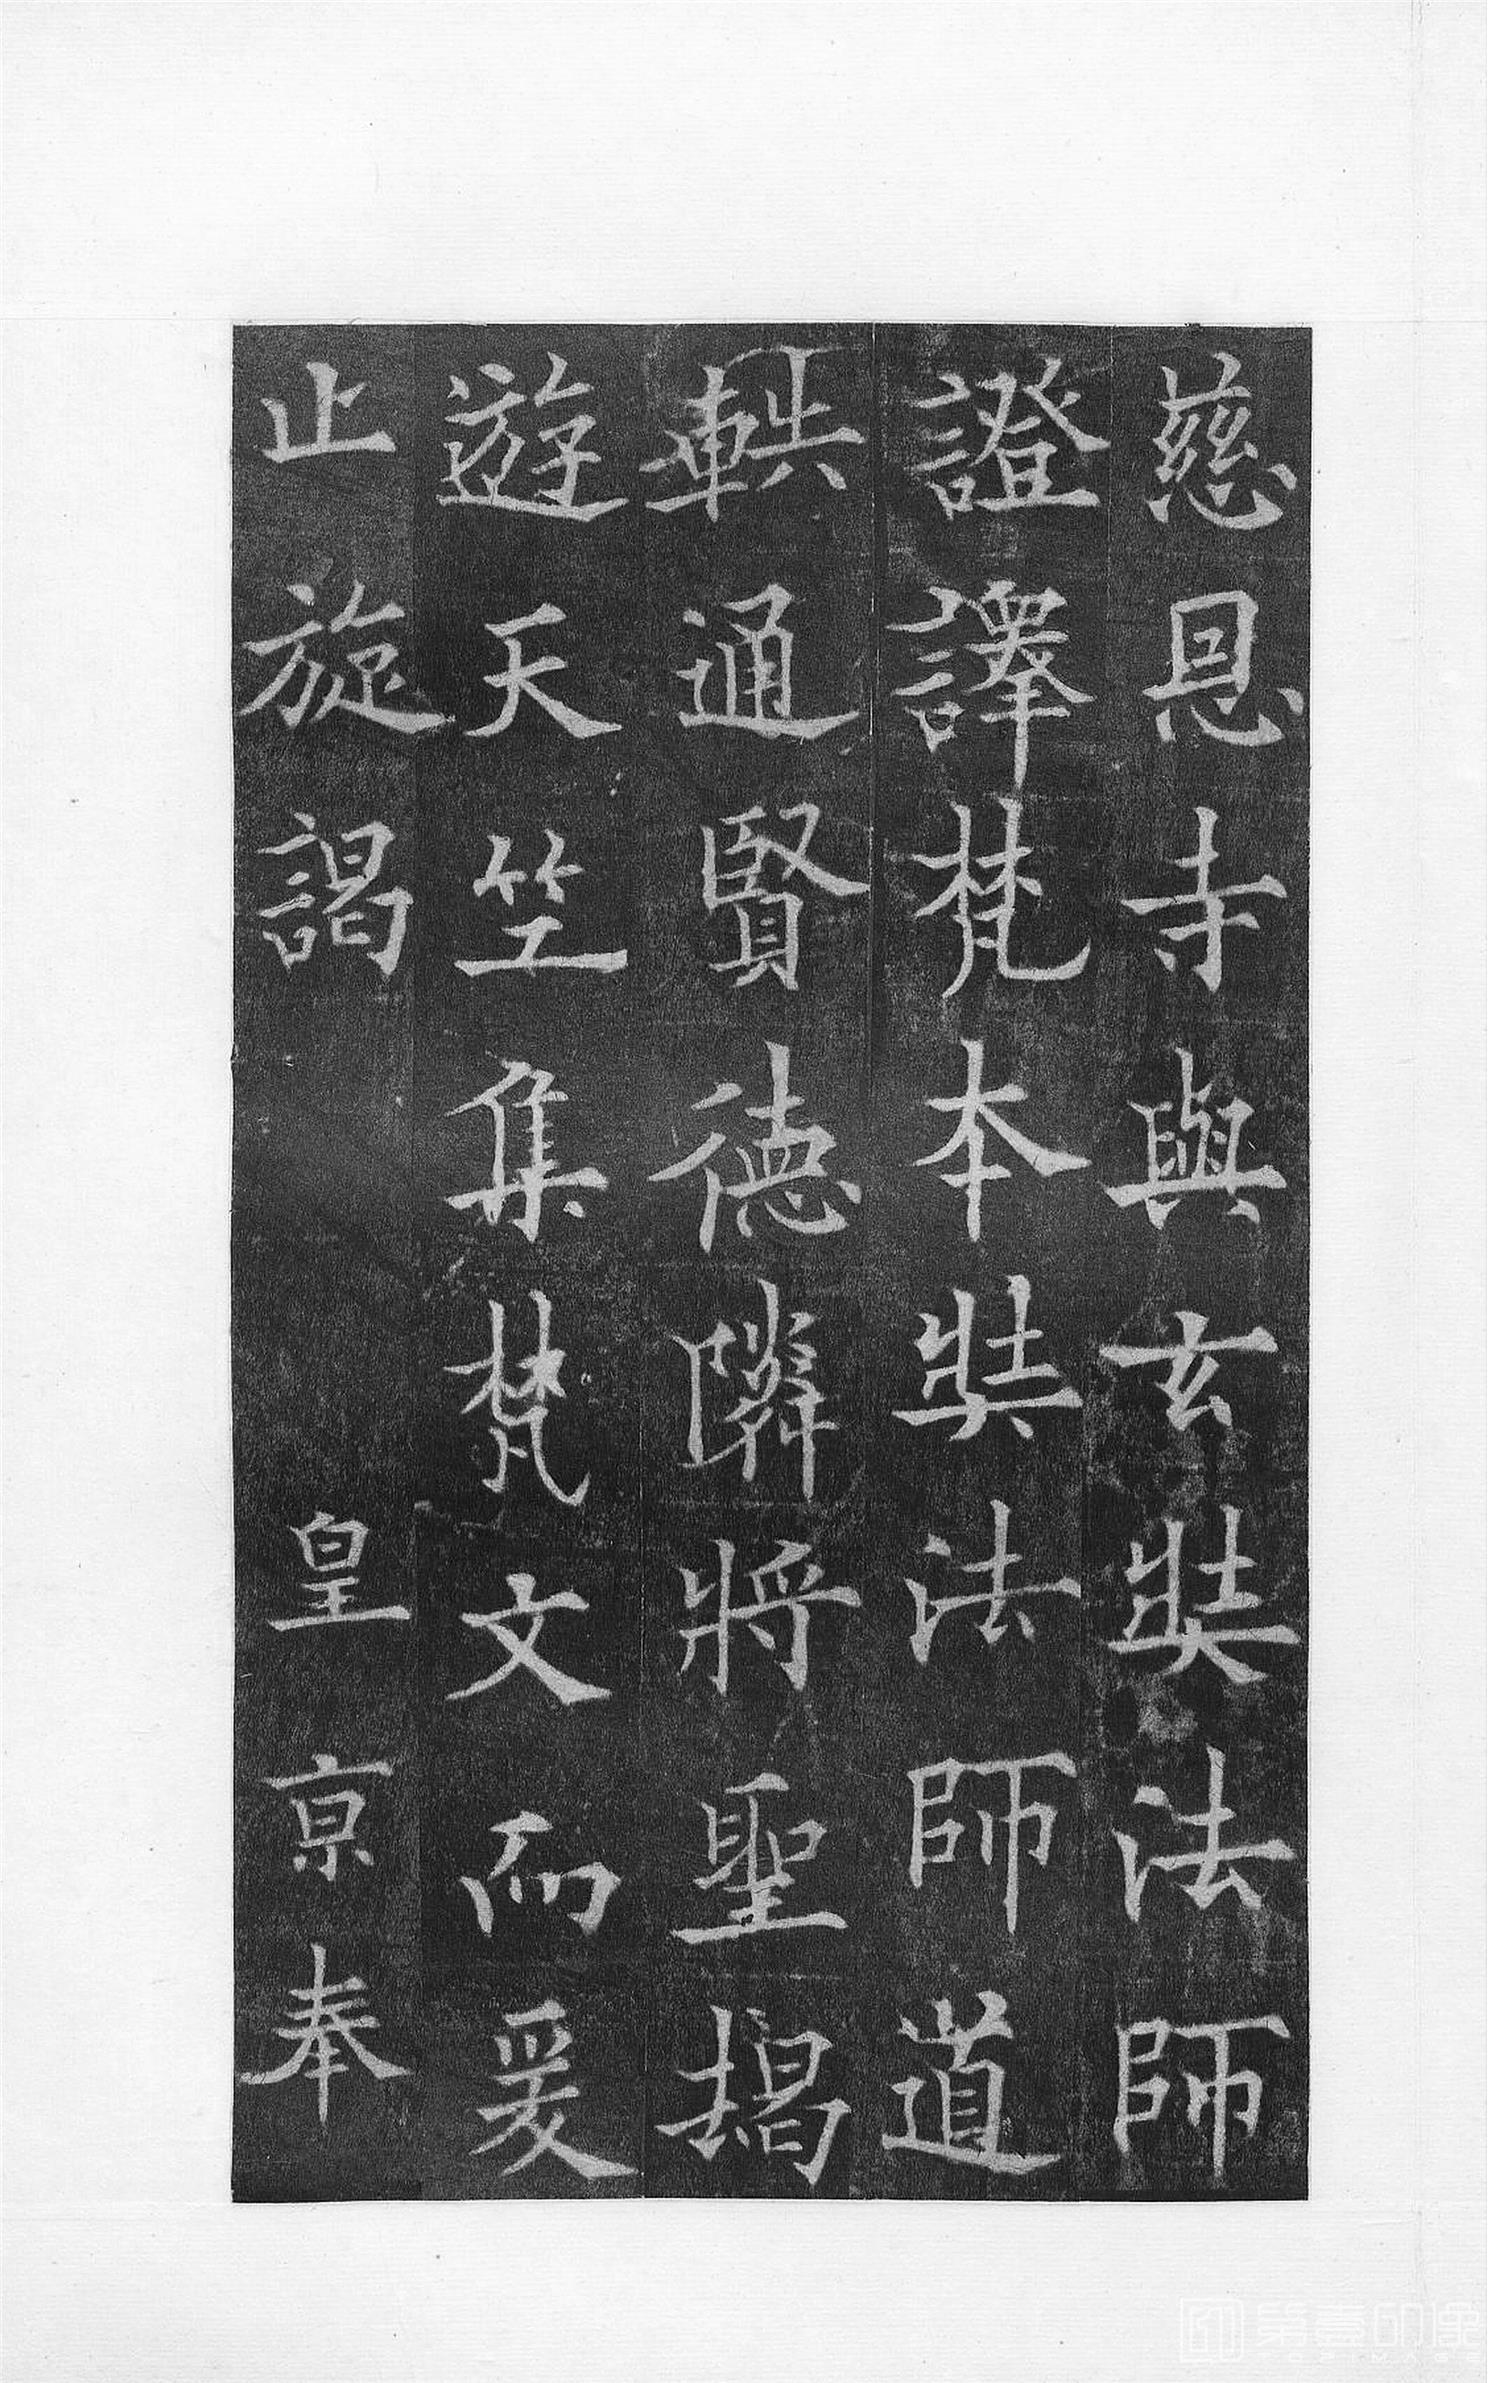 慈恩寺與玄奘法師
證譯梵本奘法師道
軼通賢德隣將聖朅
遊天竺集梵文而爰
止旋謁 皇亰奉
第壹印像
TOPIMAGE